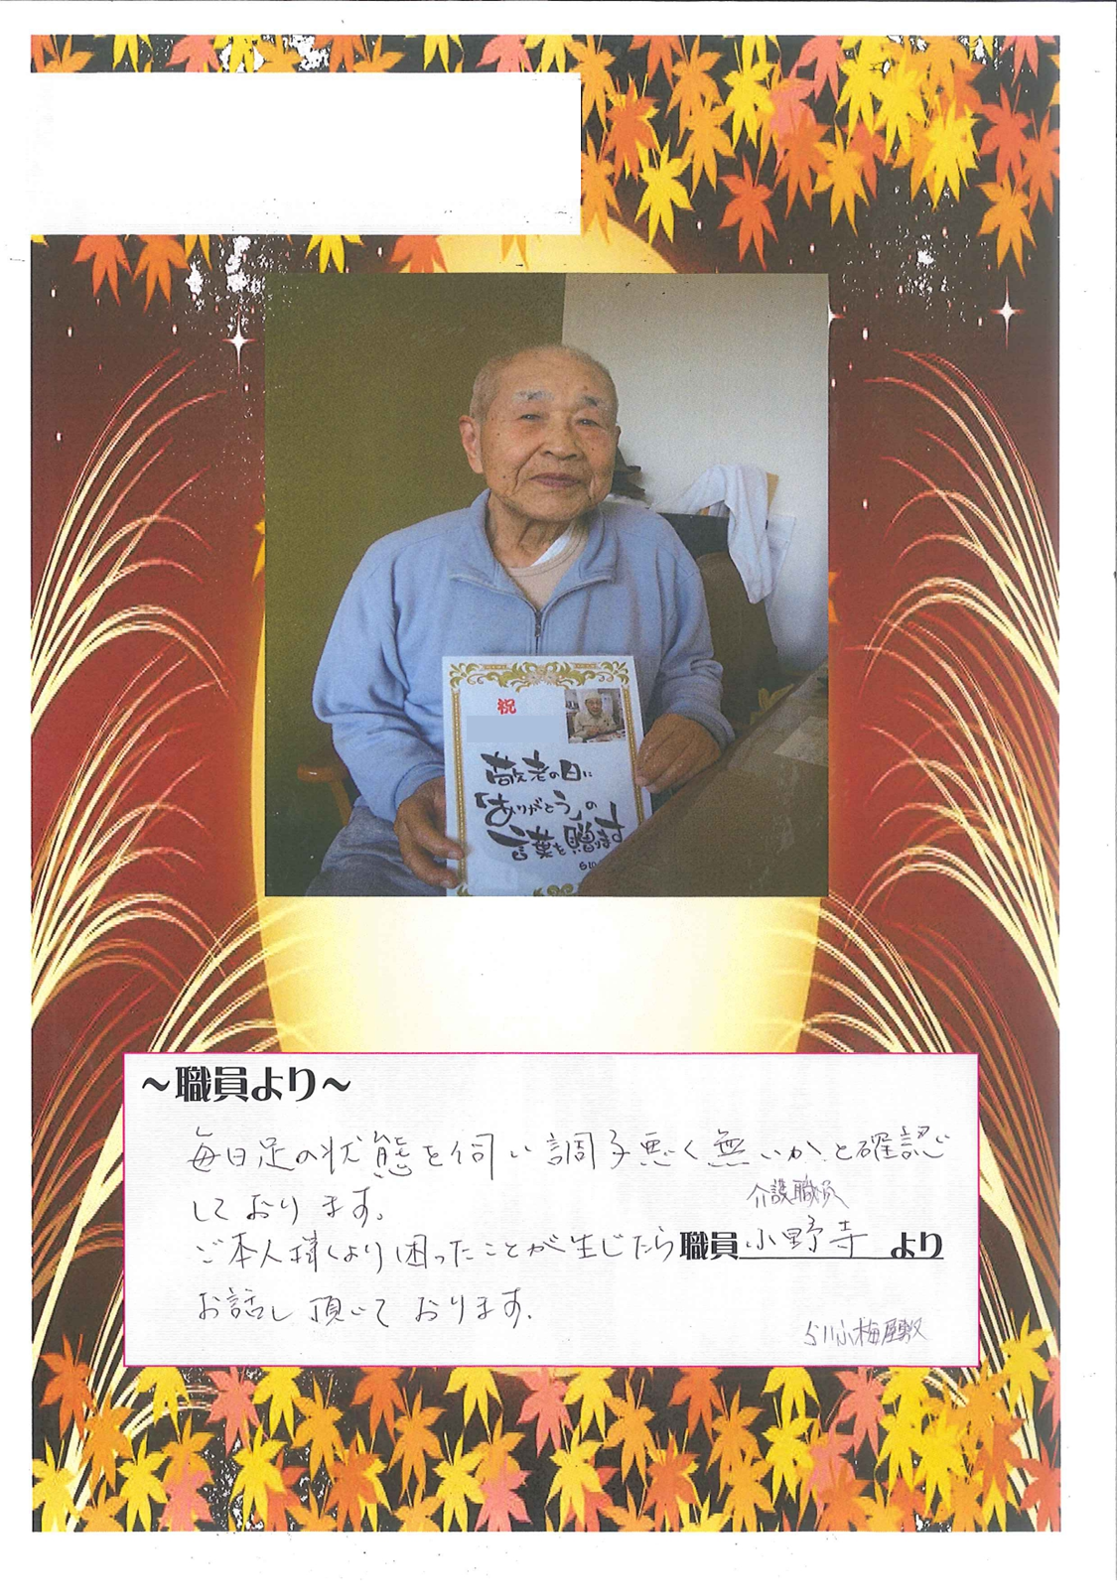 祝
敬老の日に
「ありがとう」の
言葉を贈ます
～職員より～
毎日足の状態を伺い調子悪く無いか、と確認
しております。
介護職員
ご本人様より困ったことが生じたら職員 小野寺 より
お話し頂いております。
小梅屋敷